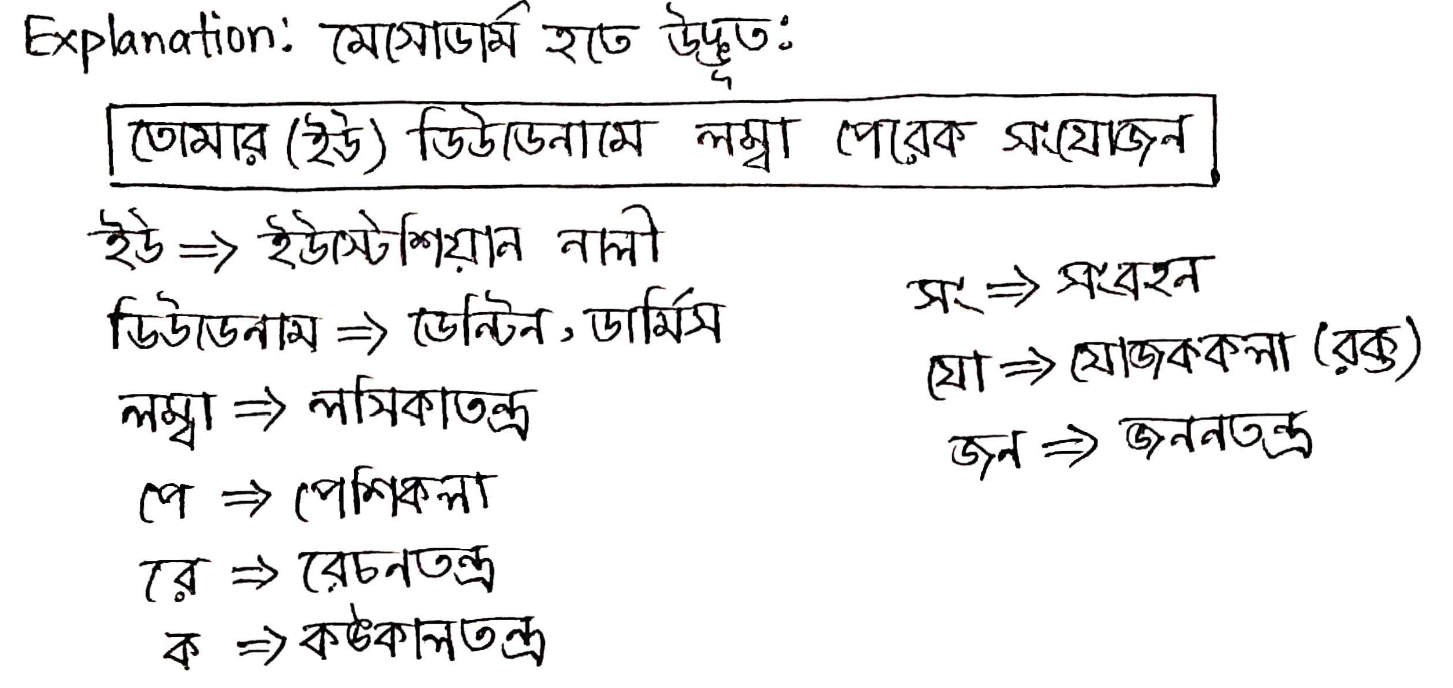 Explanation: মেসোডার্ম হতে উদ্ভূত:
তোমার (ইউ) ডিউডেনামে লম্বা পেরেক সংযোজন
ইউ => ইউস্টেশিয়ান নালী
ডিউডেনাম => ডেন্টিন, ডার্মিস
লম্বা => লসিকাতন্ত্র
পে => পেশিকলা
রে => রেচনতন্ত্র
ক => কঙকালতন্ত্র
সং => সংবহন
যো => যোজককলা (রক্ত)
জন => জননতন্ত্র